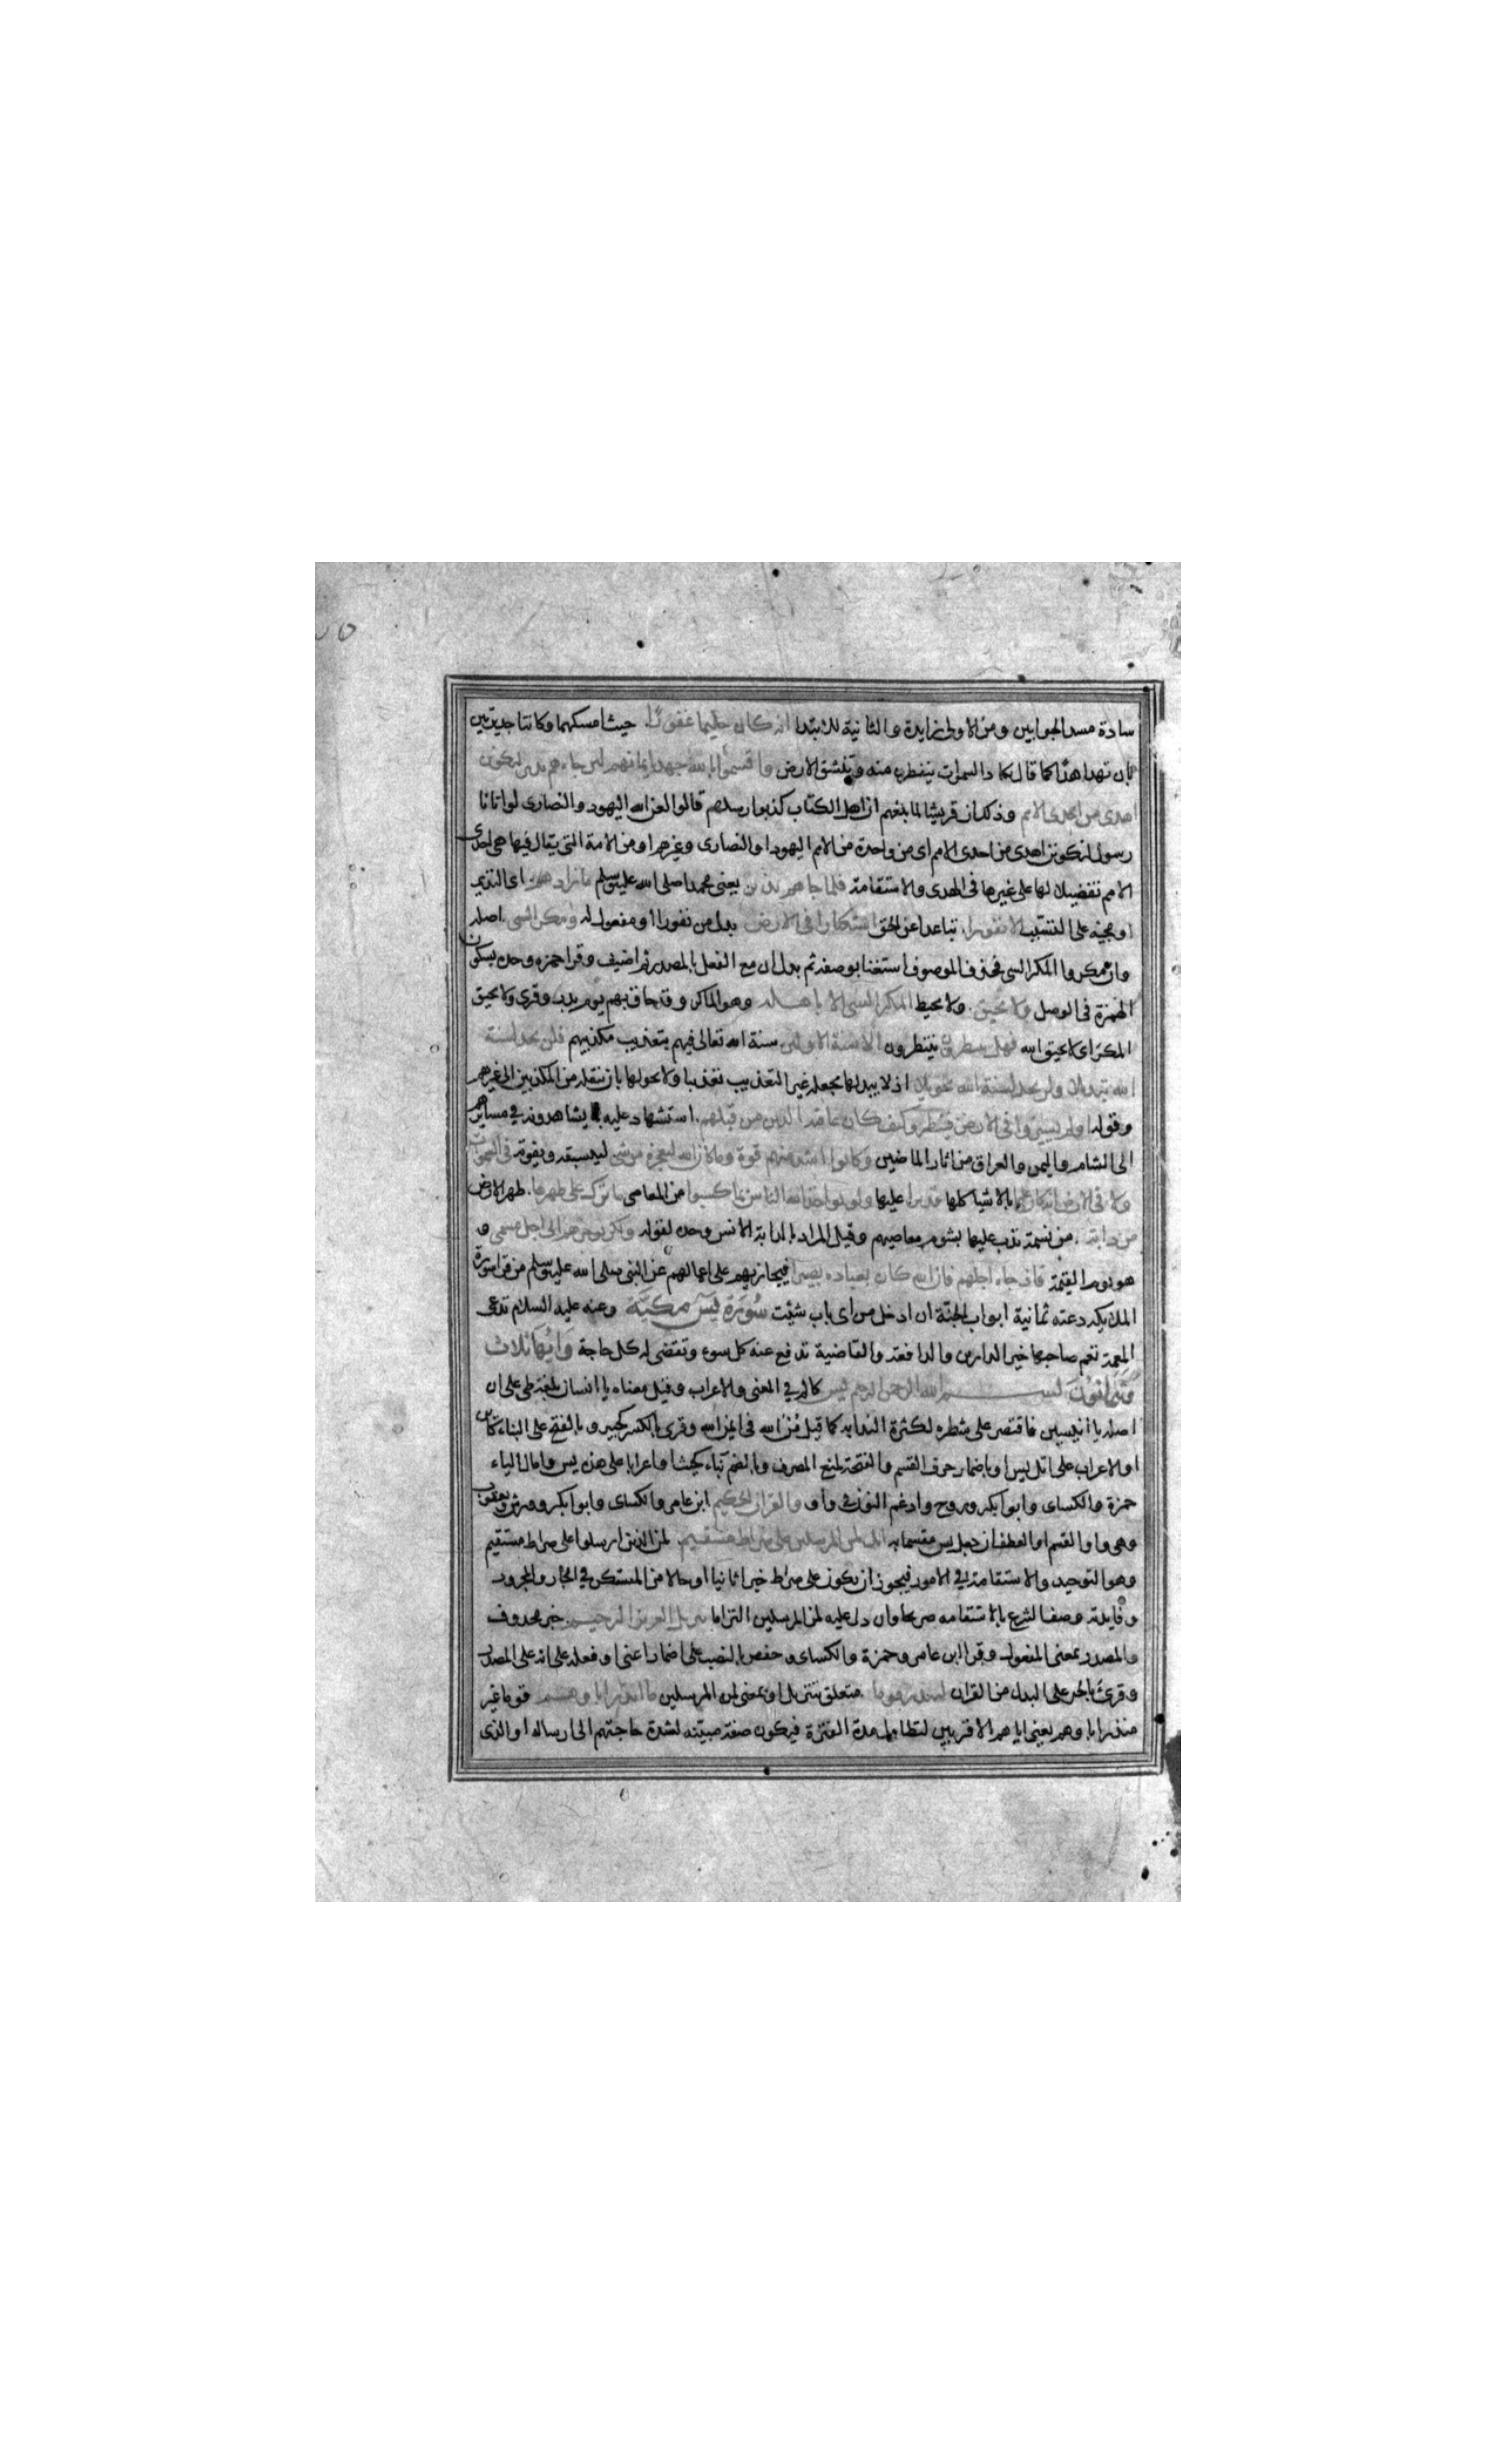 سادة مسد الجوابين ومن الاولى زايدة والثانية للابتدا انه كان حليما غفورا. حيث امسكهما وكانتا جديرتين
بان تهدا هدا كما قال تكاد السموات يتفطرن منه وتنشق الارض واقسموا بالله جهد ايمانهم لئن جاءهم نذير ليكونن
اهدى من احدى الامم وذلك ان قريشا لما بلغهم ان اهل الكتاب كذبوا رسلهم قالوا لعن الله اليهود والنصارى لو اتانا
رسول لنكونن اهدى من احدى الامم اى من واحدة من الامم اليهود او النصارى وغيرهم او من الامة التى يقال فيها هى احدى
الامم تفضيلا لها على غيرها فى الهدى والاستقامة فلما جاهم نذير يعنى محمدا صلى الله عليه وسلم ما زادهم اى النذير
او مجيئه على التسبب الا نفورا. تباعدا عن الحق استكبارا فى الارض بدل من نفورا او مفعول له ومكر السى. اصله
وان مكروا المكر السى فحذف الموصوف استغنا بوصفه ثم بدل ان مع الفعل بالمصدر ثم اضيف وقرا حمزه وحده بسكون
الهمزة فى الوصل ولا يحيق. ولا يحيط المكر السى الا باهله وهو الماكر وقد حاق بهم يوم بدر وقرى ولا يحيق
المكر اى لا يحيق الله فهل ينظرون ينتظرون الا سنة الاولين سنة الله تعالى فيهم بتعذيب مكذبيهم فلن تجد لسنة
الله تبديلا ولن تجد لسنة الله تحويلا اذ لا يبدلها بجعله غير التعذيب تعذيبا ولا يحولها بان ينقله من المكذبين الى غيرهم
وقوله اولم يسيروا فى الارض فينظروا كيف كان عاقبة الذين من قبلهم. استشهاد عليه بما يشاهدونه في مسايرهم
الى الشام واليمن والعراق من اثار الماضين وكانوا اشد منهم قوة وما كان الله ليعجزه من شى ليسبقه ويفوته فى السموات
ولا فى الارض انه كان عليما بالاشيا كلها قديرا عليها ولو يواخذ الله الناس بما كسبوا من المعاصى ما ترك على ظهرها. ظهر الارض
من دابة. من نسمة تدب عليها بشوم معاصيهم وقيل المراد بالدابة الانس وحده لقوله ولكن يوخرهم الى اجل مسمى و
هو يوم القيمة فاذا جاء اجلهم فان الله كان بعباده بصيرا فيجازيهم على اعمالهم عن النبى صلى الله عليه وسلم من قرا سورة
الملايكه دعته ثمانية ابواب الجنة ان ادخل من اى باب شئت سورة يس مكية وعنه عليه السلام تدعى
المعمة تعم صاحبها خير الدارين والدافعة والقاضية تدفع عنه كل سوء وتقضى له كل حاجة وايها ثلاث
وثمانون بسم الله الرحمن الرحيم يس كالم في المعنى والاعراب وقيل معناه يا انسان بلغة طى على ان
اصله يا انيسين فاقتصر على شطره لكثرة الندا به كما قيل من الله فى ايمن الله وقرى بالكسر كجير و بالفتح على البناء كاين
او الاعراب على اتل يس او باضمار حرف القسم والفتحة لمنع الصرف وبالضم بناء كحيث او اعرابا على هذه يس وامال الياء
حمزة والكساى وابو بكر وروح وادغم النون في واو والقران الحكيم ابن عامر والكساى وابو بكر وورش ويعقوب
وهى واو القسم او العطف ان جعل يس مقسما به انك لمن المرسلين على صراط مستقيم. لمن الذين ارسلوا على صراط مستقيم
وهو التوحيد والاستقامة في الامور فيجوز ان يكون على صراط خبرا ثانيا او حالا من المستكن في الجار والمجرور
وفايدته وصف الشرع بالاستقامه صريحا وان دل عليه لمن المرسلين التزاما تنزيل العزيز الرحيم. خبر محذوف
والمصدر بمعنى المفعول وقرا ابن عامر وحمزة والكساى وحفص بالنصب على اضمار اعنى او فعله على انه على المصدر
وقرئ بالجر على البدل من القران لتنذر قوما. متعلق بتنزيل او بمعنى لمن المرسلين ما انذر اباوهم قوما غير
منذر اباوهم يعنى اباهم الاقربين لتطاول مدة الفترة فيكون صفة مبينه لشدة حاجتهم الى ارساله او الذى